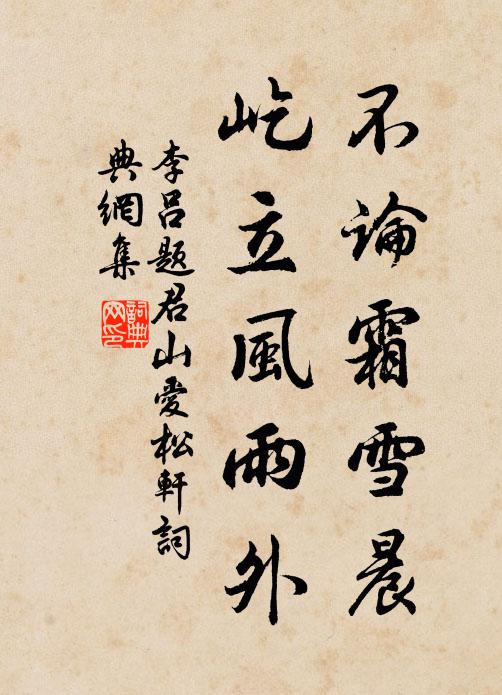 不論霜雪晨
屹立風雨外
李呂題君山愛松軒詞
典網集
詞典网印